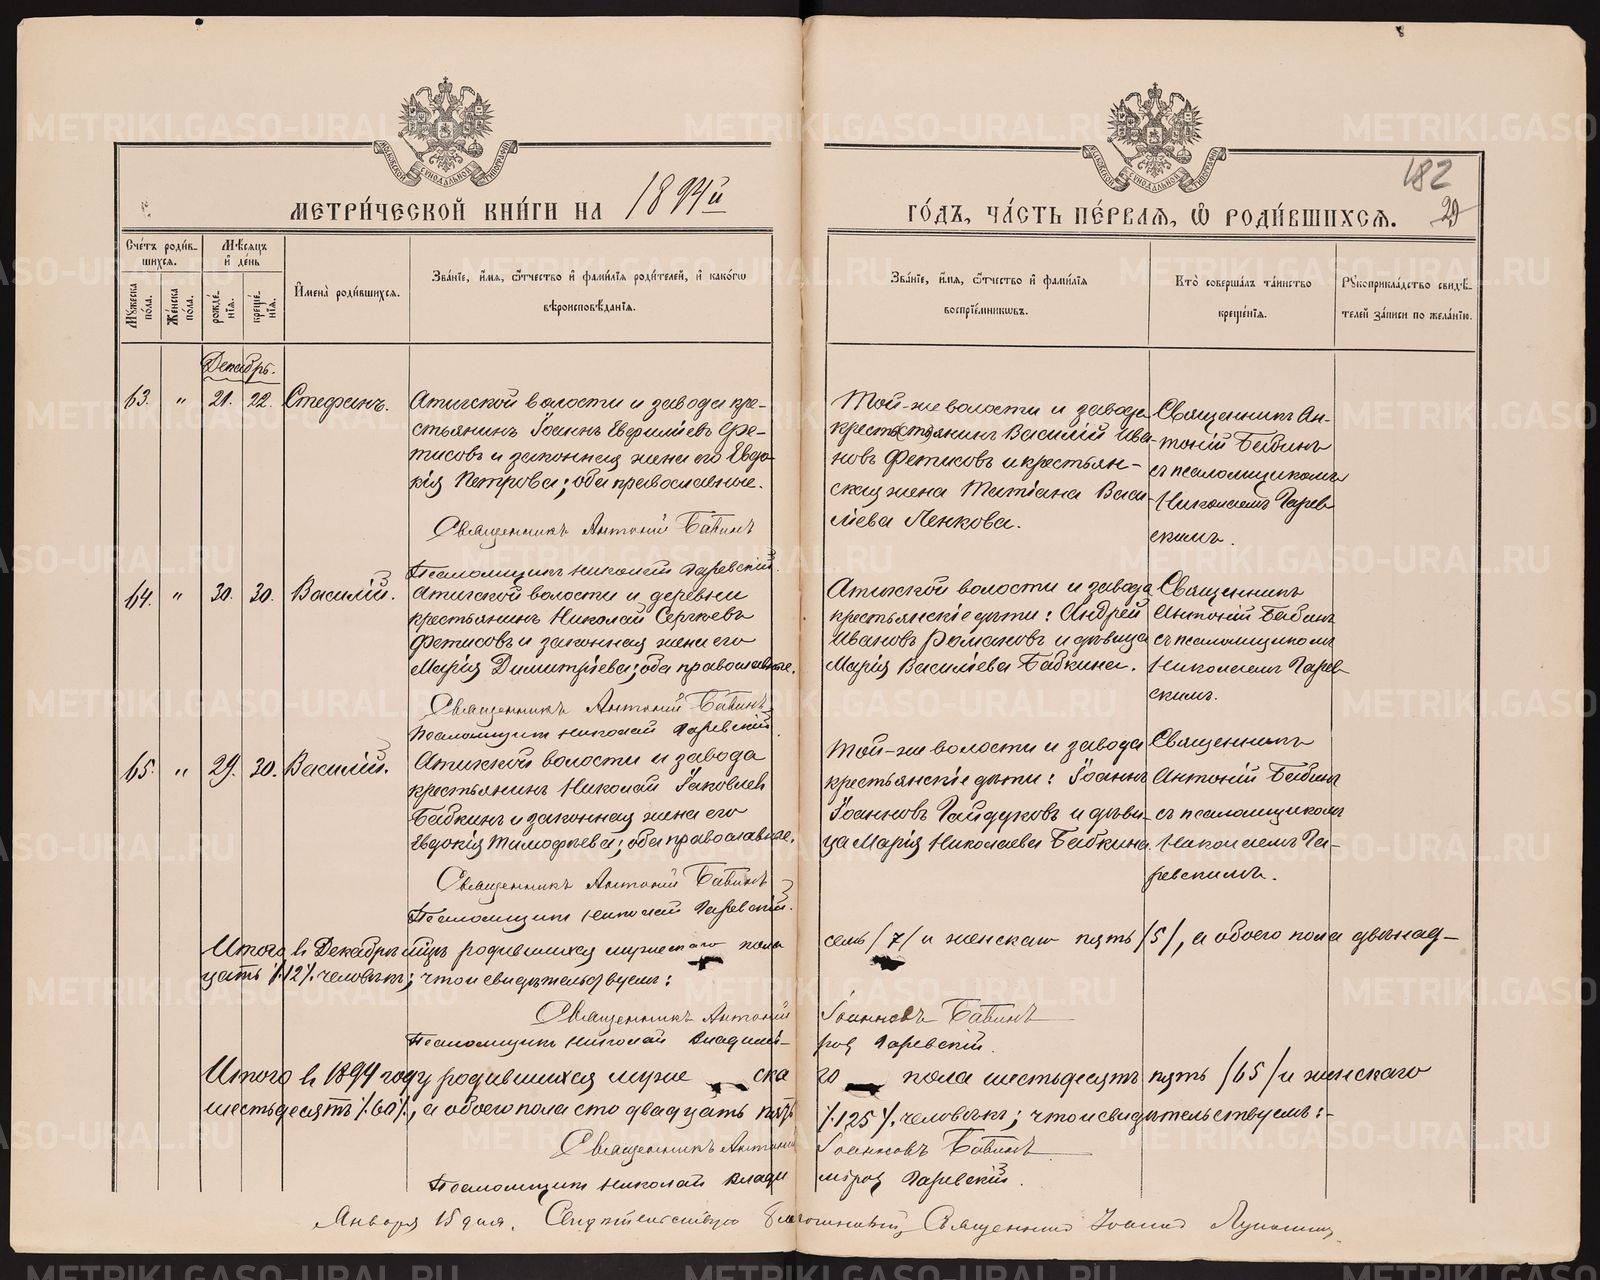 МЕТРИ́ЧЕСКОЙ КНИ́ГИ НА 1894й
ГО́ДЪ, ЧА́СТЬ ПЕ́РВАѦ, Ѡ҆ РОДИ́ВШИХСѦ.
182
29
Сче́тъ роди́в-
шихсѧ.
Мѣ́сѧцъ
и҆ де́нь
Мꙋ́жеска
по́ла.
Же́нска
по́ла.
рожде́-
нїѧ.
креще́-
нїѧ.
И҆мена̀ роди́вшихсѧ.
Зва́нїе, и҆́мѧ, ѻ҆́тчество и҆ фами́лїѧ роди́телей, и҆ како́гѡ
вѣроисповѣ́данїѧ.
Зва́нїе, и҆́мѧ, ѻ҆́тчество и҆ фами́лїѧ
воспрїе́мникѡвъ.
Кто̀ соверша́лъ та́инство
креще́нїѧ.
Рꙋкоприкла́дство свидѣ́-
телей за́писи по жела́нїю.
Декабрь.
63. " 21. 22. Стефанъ.
Атигской волости и завода кре-
стьянинъ Іоаннъ Евфиміевъ Фе-
тисовъ и законная жена его Евдо-
кія Петрова; оба православные.
Священникъ Антоній Бабинъ
Псаломщикъ Николай Гаревскій.
Той-же волости и завода
крестьянинъ Василій Ива-
новъ Фетисовъ и крестьян-
ская жена Татіана Васи-
ліева Пенкова.
Священникъ Ан-
тоній Бабинъ
съ псаломщикомъ
Николаемъ Гарев-
скимъ.
64. " 30. 30. Василій.
Атигской волости и деревни
крестьянинъ Николай Сергѣевъ
Фетисовъ и законная жена его
Марія Димитріева; оба православные.
Священникъ Антоній Бабинъ
Псаломщикъ Николай Гаревскій
Атигской волости и завода
крестьянскіе дѣти: Андрей
Ивановъ Романовъ и дѣвица
Марія Василіева Бабкина.
Священникъ
Антоній Бабинъ
съ псаломщикомъ
Николаемъ Гарев-
скимъ.
65. " 29. 30. Василій.
Атигской волости и завода
крестьянинъ Николай Іаковлевъ
Бабкинъ и законная жена его
Евдокія Тимофѣева; оба православные.
Священникъ Антоній Бабинъ
Псаломщикъ Николай Гаревскій.
Той-же волости и завода
крестьянскіе дѣти: Іоаннъ
Іоанновъ Гайдуковъ и дѣви-
ца Марія Николаева Бабкина.
Священникъ
Антоній Бабинъ
съ псаломщикомъ
Николаемъ Га-
ревскимъ.
Итого въ Декабрѣ мцѣ родившихся мужескаго пола семь /7/ и женскаго пять /5/, а обоего пола двѣнад-
цать /.12/. человѣкъ; что и свидѣтельствуемъ:
Священникъ Антоній Іоанновъ Бабинъ
Псаломщикъ Николай Владимі-ровъ Гаревскій.
Итого въ 1894 году родившихся муже ска го пола шестьдесятъ пять /65/ и женскаго
шестьдесятъ /.60/., а обоего пола сто двадцать пять /.125/. человѣкъ; что и свидѣтельствуемъ:-
Священникъ Антоній Іоанновъ Бабинъ
Псаломщикъ Николай Владиміровъ Гаревскій.
Января 15 дня. Свидѣтельствую Благочинный, Священникъ Іоаннъ